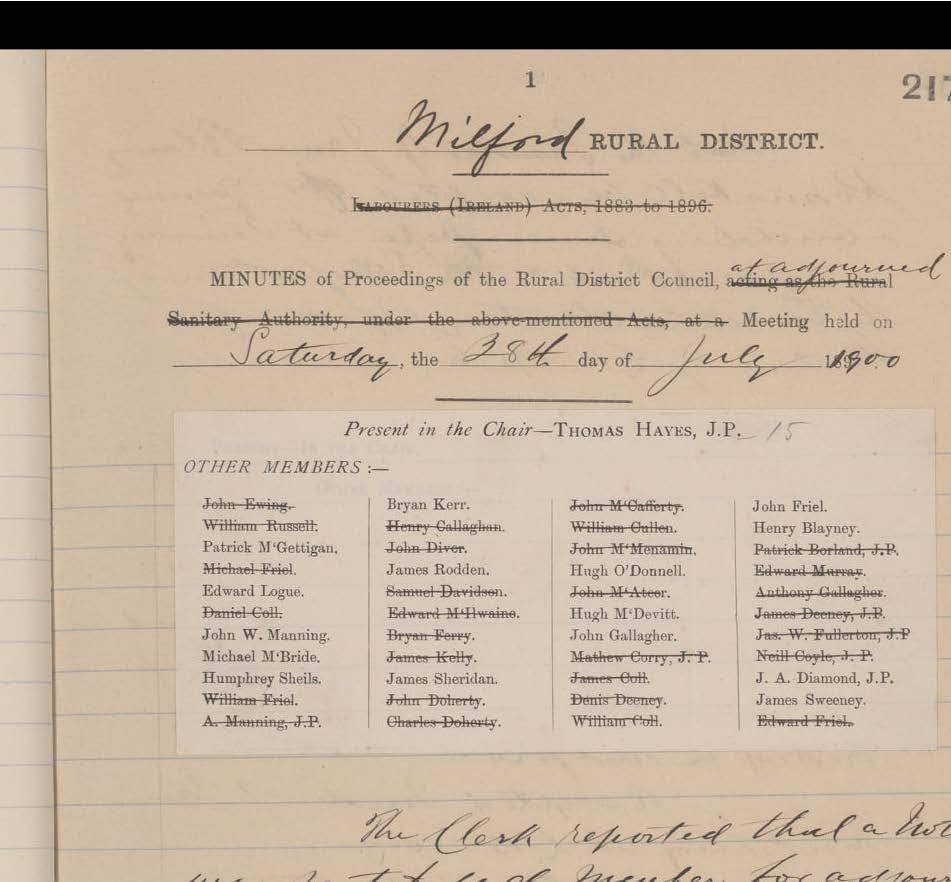 1
217
Milford RURAL DISTRICT.
LABOURERS (IRELAND) ACTS, 1883 to 1896.
at adjourned
MINUTES of Proceedings of the Rural District Council, acting as the Rural
Sanitary Authority, under the above-mentioned Acts, at a Meeting held on
Saturday, the 28th day of July 1900
Present in the Chair—THOMAS HAYES, J.P. 15
OTHER MEMBERS :—
John Ewing.
William Russell.
Patrick M'Gettigan.
Michael Friel.
Edward Logue.
Daniel Coll.
John W. Manning.
Michael M'Bride.
Humphrey Sheils.
William Friel.
A. Manning, J.P.
Bryan Kerr.
Henry Callaghan.
John Diver.
James Rodden.
Samuel Davidson.
Edward M'Ilwaine.
Bryan Ferry.
James Kelly.
James Sheridan.
John Doherty.
Charles Doherty.
John M'Cafferty.
William Cullen.
John M'Menamin.
Hugh O'Donnell.
John M'Ateer.
Hugh M'Devitt.
John Gallagher.
Mathew Corry, J. P.
James Coll.
Denis Deeney.
William Coll.
John Friel.
Henry Blayney.
Patrick Borland, J.P.
Edward Murray.
Anthony Gallagher.
James Deeney, J.P.
Jas. W. Fullerton, J.P
Neill Coyle, J. P.
J. A. Diamond, J.P.
James Sweeney.
Edward Friel.
The Clerk reported that a Not
member for adjour